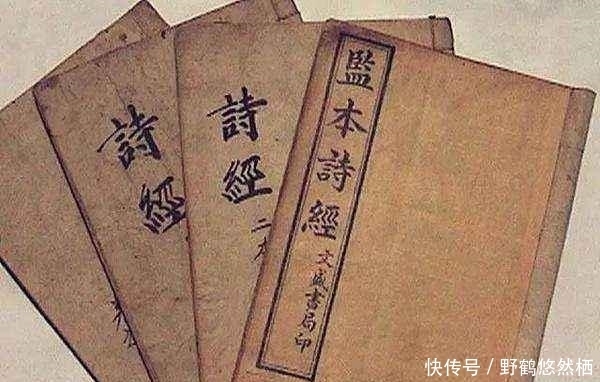 監本詩經
文盛書局印
詩經
二本
詩經
快传号 / 野鹤悠然栖